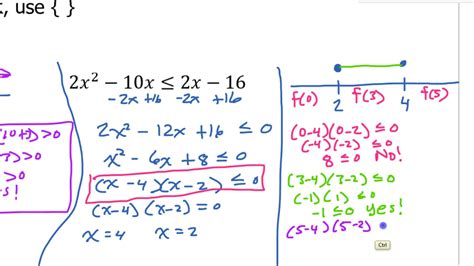 t, use { }
2x² − 10x ≤ 2x − 16
−2x +16 −2x +16
2x² − 12x + 16 ≤ 0
x² − 6x + 8 ≤ 0
(x − 4)(x − 2) ≤ 0
(x−4)(x−2) = 0
x = 4 x = 2
>0
>0
>0
s!
f(0) 2 f(3) 4 f(5)
(0−4)(0−2) ≤ 0
(−4)(−2) ≤ 0
8 ≤ 0 No!
(3−4)(3−2) ≤ 0
(−1)(1) ≤ 0
−1 ≤ 0 yes!
(5−4)(5−2)
Ctrl